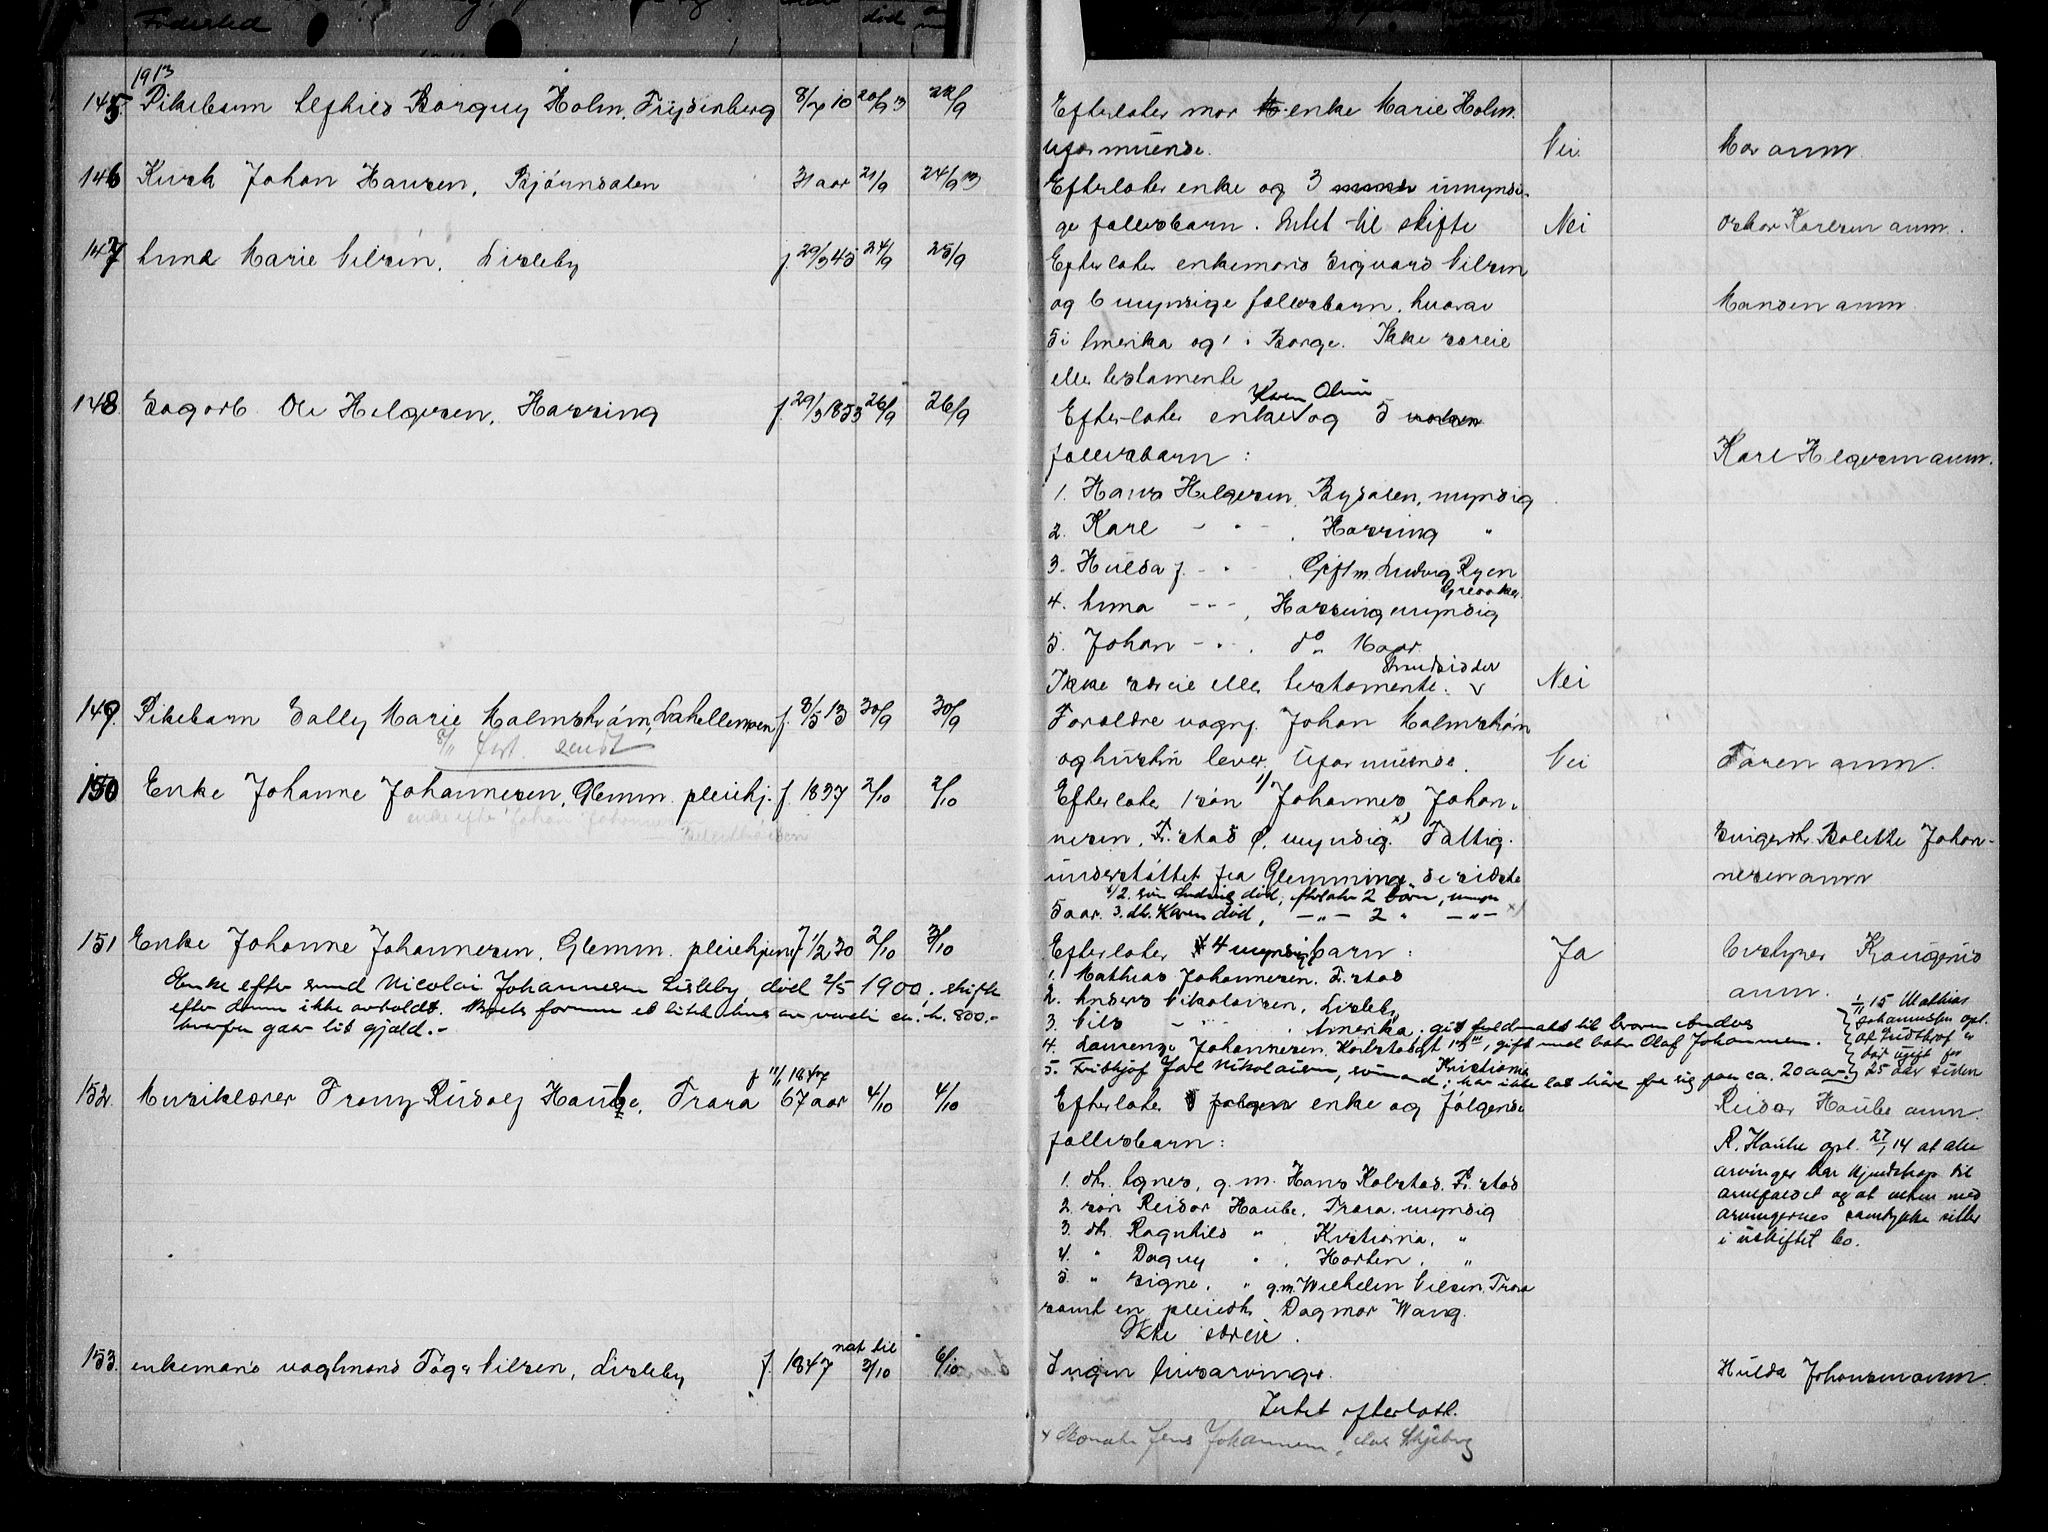 Fødested
død
1913
145. Pikebarn Alfhild Borguy Holm, Frydenberg 8/7 10 20/9 13 22/9
Efterlater mor enke Marie Holm.
uformuende. Nei Mor anm.
146 Kusk Johan Hansen, Bjørndalen 31 aar 21/9 24/9 13
Efterlater enke og 3 umyndi-
ge fællesbarn. Intet til skifte Nei Oskar Karlsen anm.
147 Anna Marie Nilsen, Lisleby f. 29/3 45 24/9 25/9
Efterlater enkemand Sigvard Nilsen
og 6 myndige fællesbarn, hvorav Manden anm.
5 i Amerika og 1 i Borge. Ikke særeie
eller testamente
148. Sagarb. Ole Helgesen, Hassing f. 29/3 1853 26/9 26/9
Karen Oline
Efterlater enke og 5 voksen
fællesbarn: Karl Helgesen anm.
1. Hans Helgesen, Bydalen, myndig
2. Karl - " - , Hassing "
3. Hulda f. - " - . Gift m. Ludvig Ryen
Greaaker.
4. Anna - " - , Hassing myndig
5. Johan - " - . do. 16 aar
Ikke særeie eller testamente. Nei
149. Pikebarn Sally Marie Malmstrøm, Lahellemoen f. 8/5 13 30/9 30/9
Forældre vognf. Johan Malmstrøm
fort. sendt
og hustru lever. Uformuende. Nei Faren anm.
150 Enke Johanne Johannesen, Glemm. pleiehj. f. 1837 2/10 2/10
Efterlater 1 søn 1/ Johannes Johan-
enke efter Johan Johannesen
nesen, Fr.stad Ø, myndig. x) Fattig- Svigerdt. Bolette Johan-
understøttet fra Glemminge de sidste nesen anm
1/2. søn Ludvig død, efterlater 2 børn,
5 aar. 3. dt. Karen død, - " - 2 " - " - x)
151 Enke Johanne Johannesen, Glemm. pleiehjem f 1/2 30 2/10 3/10
Efterlater 4 myndig barn: Ja Bestyrer Haugerud
Enke efter smed Nicolai Johannesen Lisleby, død 2/5 1900; skifte
1. Mathias Johannesen, Fr.stad anm.
efter denne ikke avholdt. Boets formue et litet hus av værdi ca. kr. 800.-
2. Anders Nikolaisen, Lisleby
hvorfra gaar lit gjæld.-
3. Nils - " - , Amerika; git fuldmakt til broren Anders
4. Laurenze Johannesen, gift med baker Olaf Johannesen.
1/11 15 Mathias
Johannesen opl.
at Fridthjof er
død ugift for
25 aar siden
Kristiania
5. Fridthjof Jarl Nikolaisen, sømand; har ikke lat høre fra sig paa ca. 20 aar.
152. Musiklærer Franz Rudolf Haube, Trara f 11/1 1847 67 aar 4/10 4/10
Efterlater enke og følgende Reidar Haube anm.
fællesbarn:
R. Haube opl. 27/1 14 at alle
arvinger har kjendskap til
arvefaldet og at enken med
arvingernes samtykke sitter
i uskiftet bo.
1. dt. Agnes, g.m. Hans Kolstad, Fr.stad
2. søn Reidar Haube, Trara, myndig
3. dt. Ragnhild " , Kristiania, "
4. " Dagny " , Horten, "
5. " Signe, " g.m. Wilhelm Nilsen, Trara
samt en pleiedt. Dagmar Wang.
Ikke særeie.
153. enkemand vagtmand Tøger Nilsen, Lisleby f. 1847 nat til 3/10 6/10
Ingen livsarvinger. Hulda Johansen anm.
Intet efterlatt.
x Jens Johannesen,